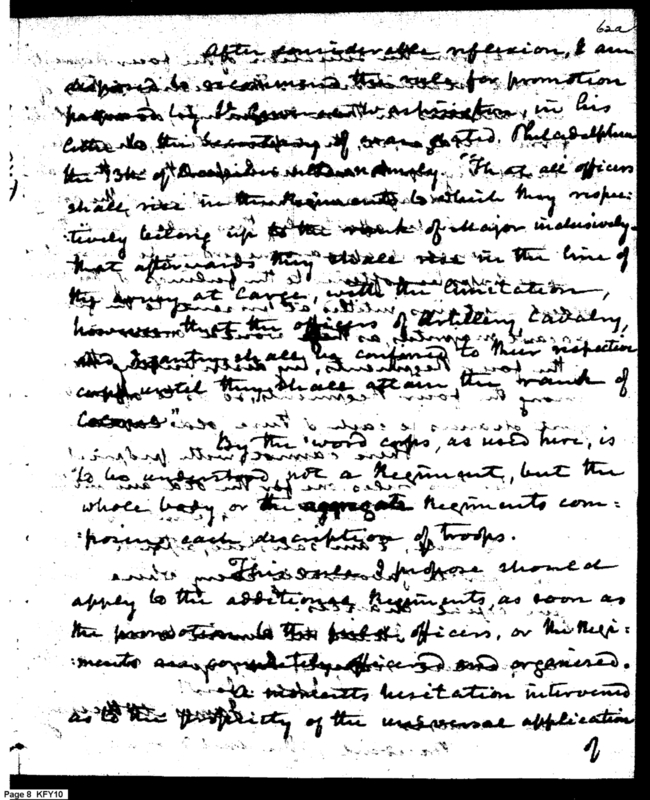 62a
After considerable reflexion, I am
disposed to recommend the rule for promotion
proposed by General Washington, in his
letter to the Secretary of war dated Philadelphia
the 13th of December, "That all officers
shall rise in the Regiments to which they respec-
tively belong up to the rank of Major inclusively-
that afterwards they shall rise in the line of
the army at large, with the limitation,
however that the officers of Artillery, Cavalry,
and Infantry shall be confined to their respective
corps, until they shall attain the rank of
Colonel"
By the word corps, as used here, is
to be understood, not a Regiment, but the
whole body, or the aggregate Regiments com=
=posing each description of troops.
This rule I propose should
apply to the additional Regiments, as soon as
the promotion officers, or the Regi=
=ments are completely officered and organised.
A moments hesitation intervened
as to the propriety of the universal application
of
Page 8 KFY10